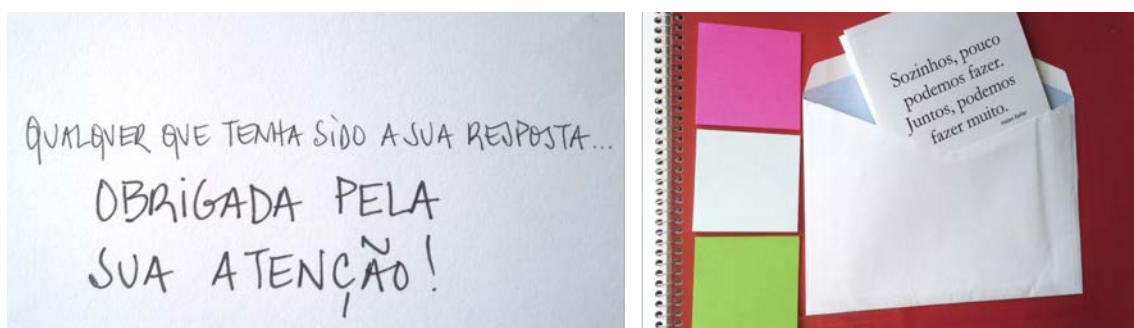 QUALQUER QUE TENHA SIDO A SUA RESPOSTA...
OBRIGADA PELA
SUA ATENÇÃO!
Sozinhos, pouco
podemos fazer.
Juntos, podemos
fazer muito.
Helen Keller